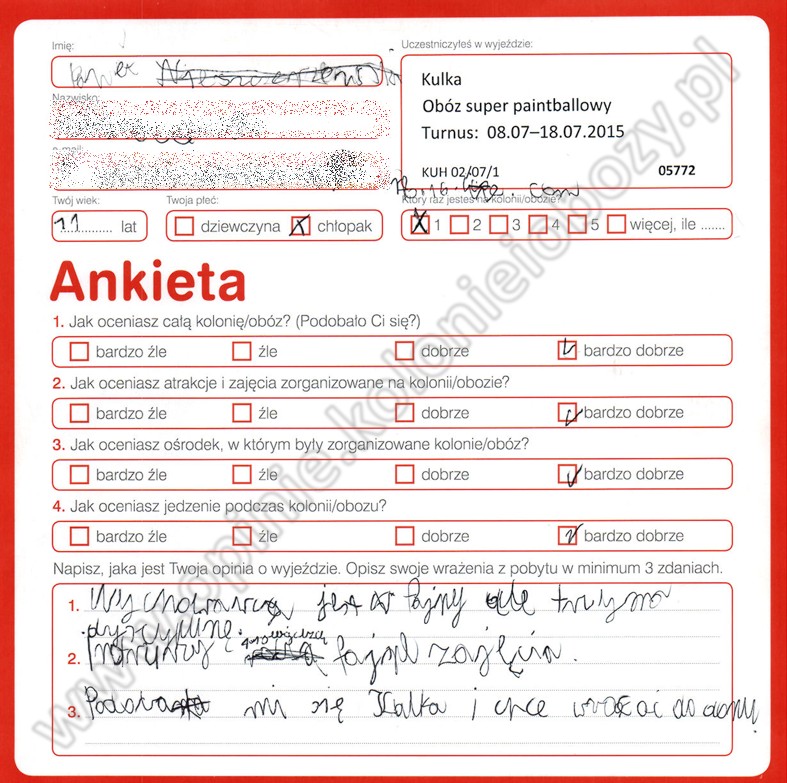 Imię:
Uczestniczyłeś w wyjeździe:
Kulka
Obóz super paintballowy
Turnus: 08.07–18.07.2015
KUH 02/07/1 05772
Nazwisko:
e-mail:
.com
Twój wiek: Twoja płeć: Który raz jesteś na kolonii/obozie?
11 lat dziewczyna X chłopak X 1 2 3 4 5 więcej, ile .......
Ankieta
1. Jak oceniasz całą kolonię/obóz? (Podobało Ci się?)
bardzo źle źle dobrze bardzo dobrze
2. Jak oceniasz atrakcje i zajęcia zorganizowane na kolonii/obozie?
bardzo źle źle dobrze bardzo dobrze
3. Jak oceniasz ośrodek, w którym były zorganizowane kolonie/obóz?
bardzo źle źle dobrze bardzo dobrze
4. Jak oceniasz jedzenie podczas kolonii/obozu?
bardzo źle źle dobrze bardzo dobrze
Napisz, jaka jest Twoja opinia o wyjeździe. Opisz swoje wrażenia z pobytu w minimum 3 zdaniach.
1. Wychowawca jest fajny ale trzyma
dyscyplinę.
2. fajne zajęcia.
3. mi się Kulka i chce wracać do domu!
www.opinie.kolonieiobozy.pl